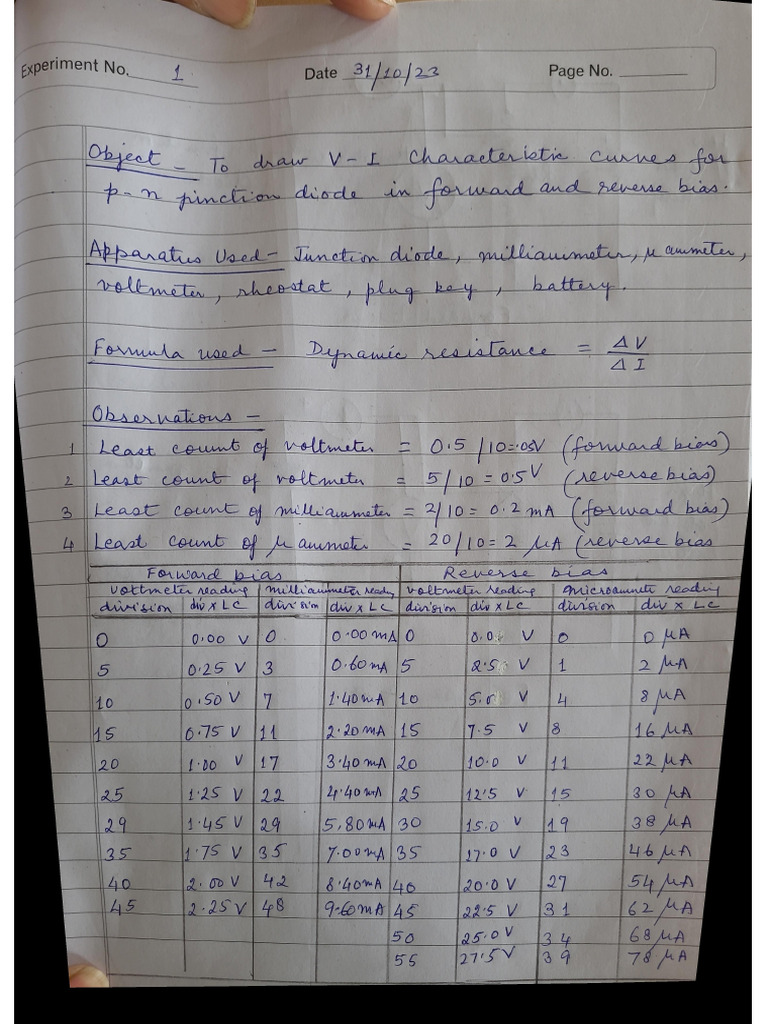 Experiment No. 1 Date 31/10/23 Page No.
Object - To draw V-I characteristic curves for
p-n pinction diode in forward and reverse bias.
Apparatus Used- Junction diode, milliammeter, μ ammeter,
voltmeter, rheostat, plug key, battery.
Formula used - Dynamic resistance = ΔV/ΔI
Observations -
1 Least count of voltmeter = 0.5/10=.05V (forward bias)
2 Least count of voltmeter = 5/10 = 0.5V (reverse bias)
3 Least count of milliammeter = 2/10 = 0.2 mA (forward bias)
4 Least count of μ ammeter = 20/10=2 μA (reverse bias
Forward bias Reverse bias
voltmeter reading milliammeter reading voltmeter reading microammete reading
division div x LC division div x LC division div x LC division div x LC
0 0.00 V 0 0.00 mA 0 0.0 V 0 0 μA
5 0.25 V 3 0.60 mA 5 2.5 V 1 2 μA
10 0.50 V 7 1.40 mA 10 5.0 V 4 8 μA
15 0.75 V 11 2.20 mA 15 7.5 V 8 16 μA
20 1.00 V 17 3.40 mA 20 10.0 V 11 22 μA
25 1.25 V 22 4.40 mA 25 12.5 V 15 30 μA
29 1.45 V 29 5.80 mA 30 15.0 V 19 38 μA
35 1.75 V 35 7.00 mA 35 17.0 V 23 46 μA
40 2.00 V 42 8.40 mA 40 20.0 V 27 54 μA
45 2.25 V 48 9.60 mA 45 22.5 V 31 62 μA
50 25.0 V 34 68 μA
55 27.5 V 39 78 μA